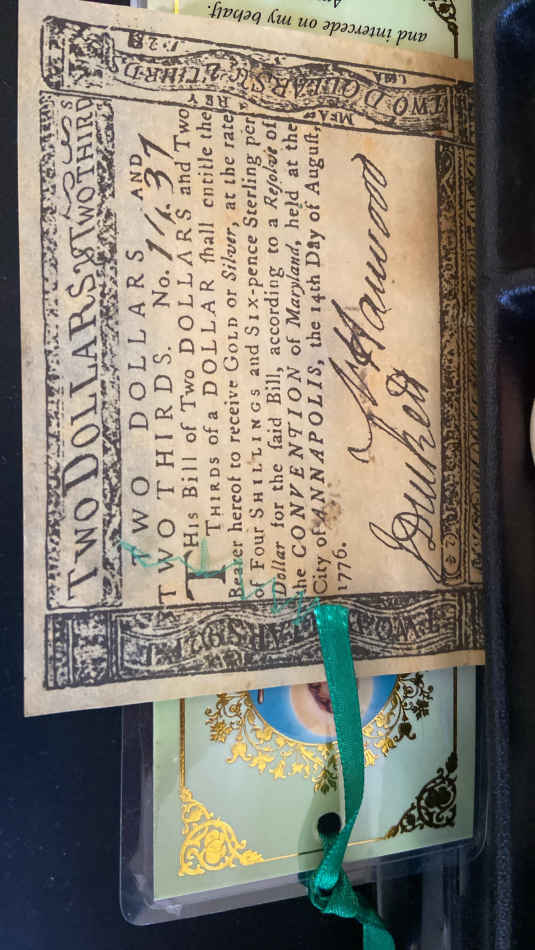 and intercede on my behalf.
TWO DOLLARS & TWO THIRDS
TWO DOLLARS AND
TWO THIRDS. No. 1437
THIS Bill of Two DOLLARS and Two
THIRDS of a DOLLAR ſhall entitle the
Bearer hereof to receive GOLD or Silver, at the rate
of Four SHILLINGS and SIX-pence Sterling per
Dollar for the ſaid Bill, according to a Reſolve of
the CONVENTION of Maryland, held at the
City of ANNAPOLIS, the 14th Day of Auguſt,
1776.
J Duckett
TWO DOLLARS & 2 THIRD